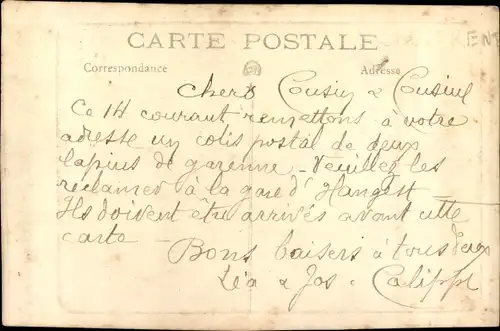 CARTE POSTALE
ENT
Correspondance
Adresse
Chers Cousin & Cousine
Ce 14 courant remettons à votre
adresse un colis postal de deux
lapins de garenne - Veuillez les
réclamer à la gare d'Hangest -
Ils doivent être arrivés avant cette
carte - Bons baisers à tous deux
Léa & Jos. Calippe